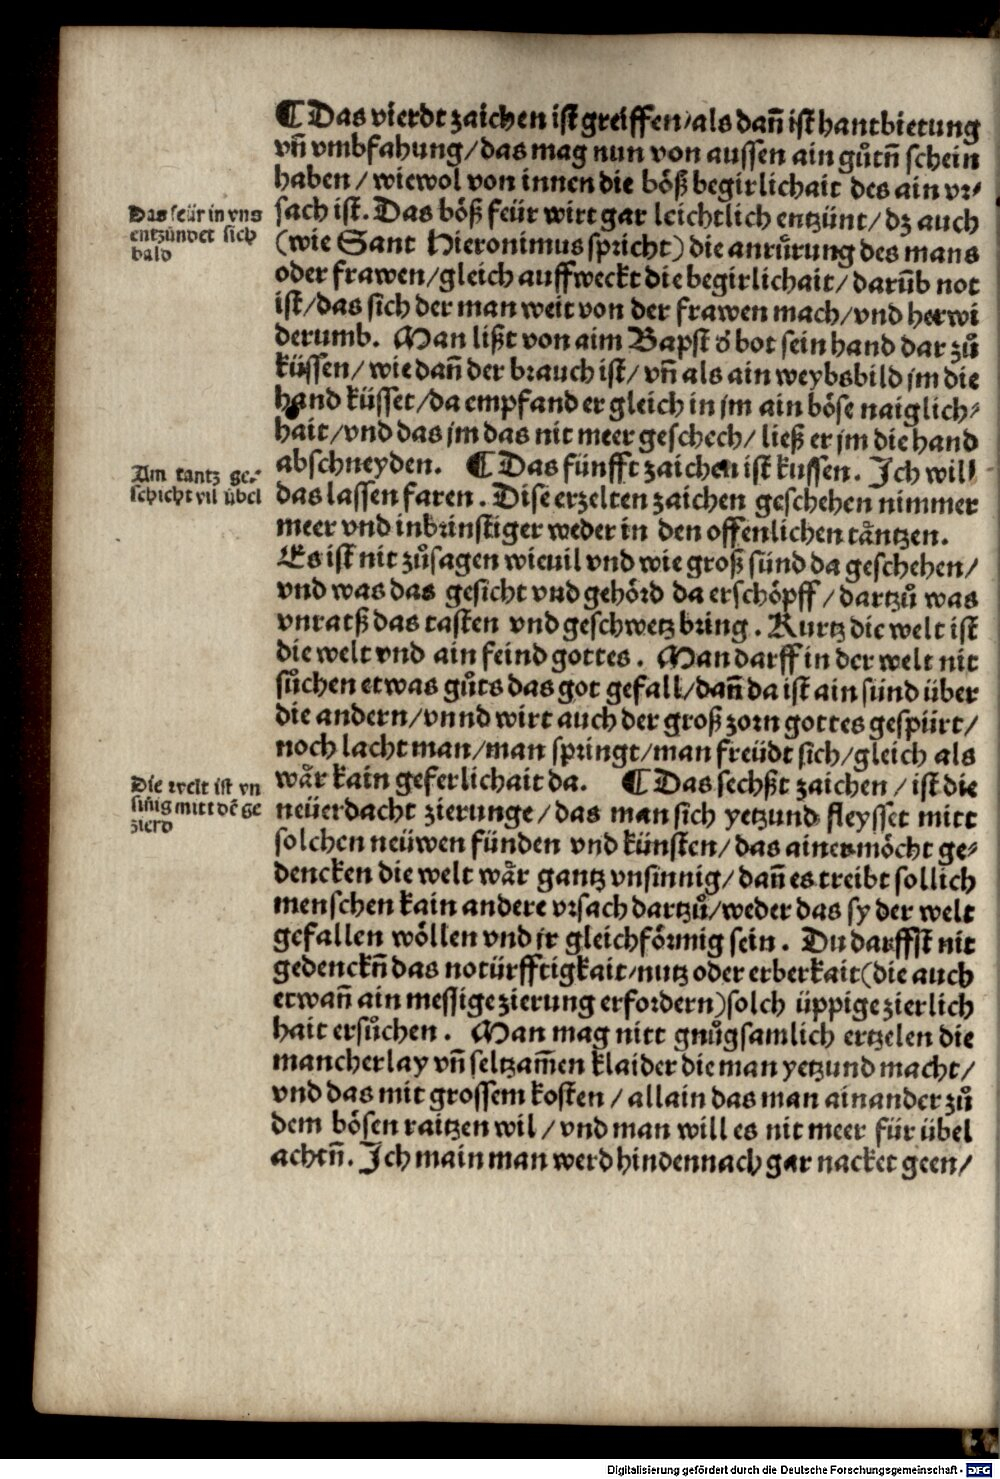 ¶ Das vierdt zaichen ist greiffen/als dañ ist hantbietung
vñ vmbfahung/das mag nun von aussen ain gůtñ schein
haben/wiewol von innen die böß begirlichait des ain vr⸗
sach ist. Das böß feür wirt gar leichtlich entzünt/dz auch
(wie Sant Hieronimus spricht) die anrůrung des mans
oder frawen/gleich auffweckt die begirlichait/darũb not
ist/das sich der man weit von der frawen mach/vnd herwi
derumb. Man lißt von aim Bapst d' bot sein hand dar zů
küssen/wie dañ der brauch ist/vñ als ain weybsbild jm die
hand küsset/da empfand er gleich in jm ain böse naiglich⸗
hait/vnd das jm das nit meer geschech/ließ er jm die hand
abschneyden. ¶ Das fünfft zaichen ist kussen. Ich will
das lassen faren. Dise erzelten zaichen geschehen nimmer
meer vnd inbrinstiger weder in den offenlichen tåntzen.
Es ist nit zůsagen wieuil vnd wie groß sünd da geschehen/
vnd was das gesicht vnd gehörd da erschöpff/dartzů was
vnratß das tasten vnd geschwetz bring. Kurtz die welt ist
die welt vnd ain feind gottes. Man darff in der welt nit
sůchen etwas gůts das got gefall/dañ da ist ain sünd über
die andern/vnnd wirt auch der groß zorn gottes gespürt/
noch lacht man/man springt/man freüdt sich/gleich als
wår kain geferlichait da. ¶ Das sechßt zaichen/ist die
neüerdacht zierunge/das man sich yetzund fleysset mitt
solchen neüwen fünden vnd künsten/das ainer möcht ge⸗
dencken die welt wår gantz vnsinnig/dañ es treibt sollich
menschen kain andere vrsach dartzů/weder das sy der welt
gefallen wöllen vnd jr gleichförmig sein. Du darffst nit
gedenckñ das notürfftigkait/nutz oder erberkait(die auch
etwañ ain messige zierung erfordern)solch üppige zierlich
hait ersůchen. Man mag nitt gnůgsamlich ertzelen die
mancherlay vñ seltzam̃en klaider die man yetzund macht/
vnd das mit grossem kosten/allain das man ainander zů
dem bösen raitzen wil/vnd man will es nit meer für übel
achtñ. Ich main man werd hindennach gar nacket geen/
Das feür in vns
entzündet sich
bald
Am tantz ge⸗
schicht vil übel
Die welt ist vn
sin̄ig mitt dẽ ge
zierd
Digitalisierung gefördert durch die Deutsche Forschungsgemeinschaft - DFG